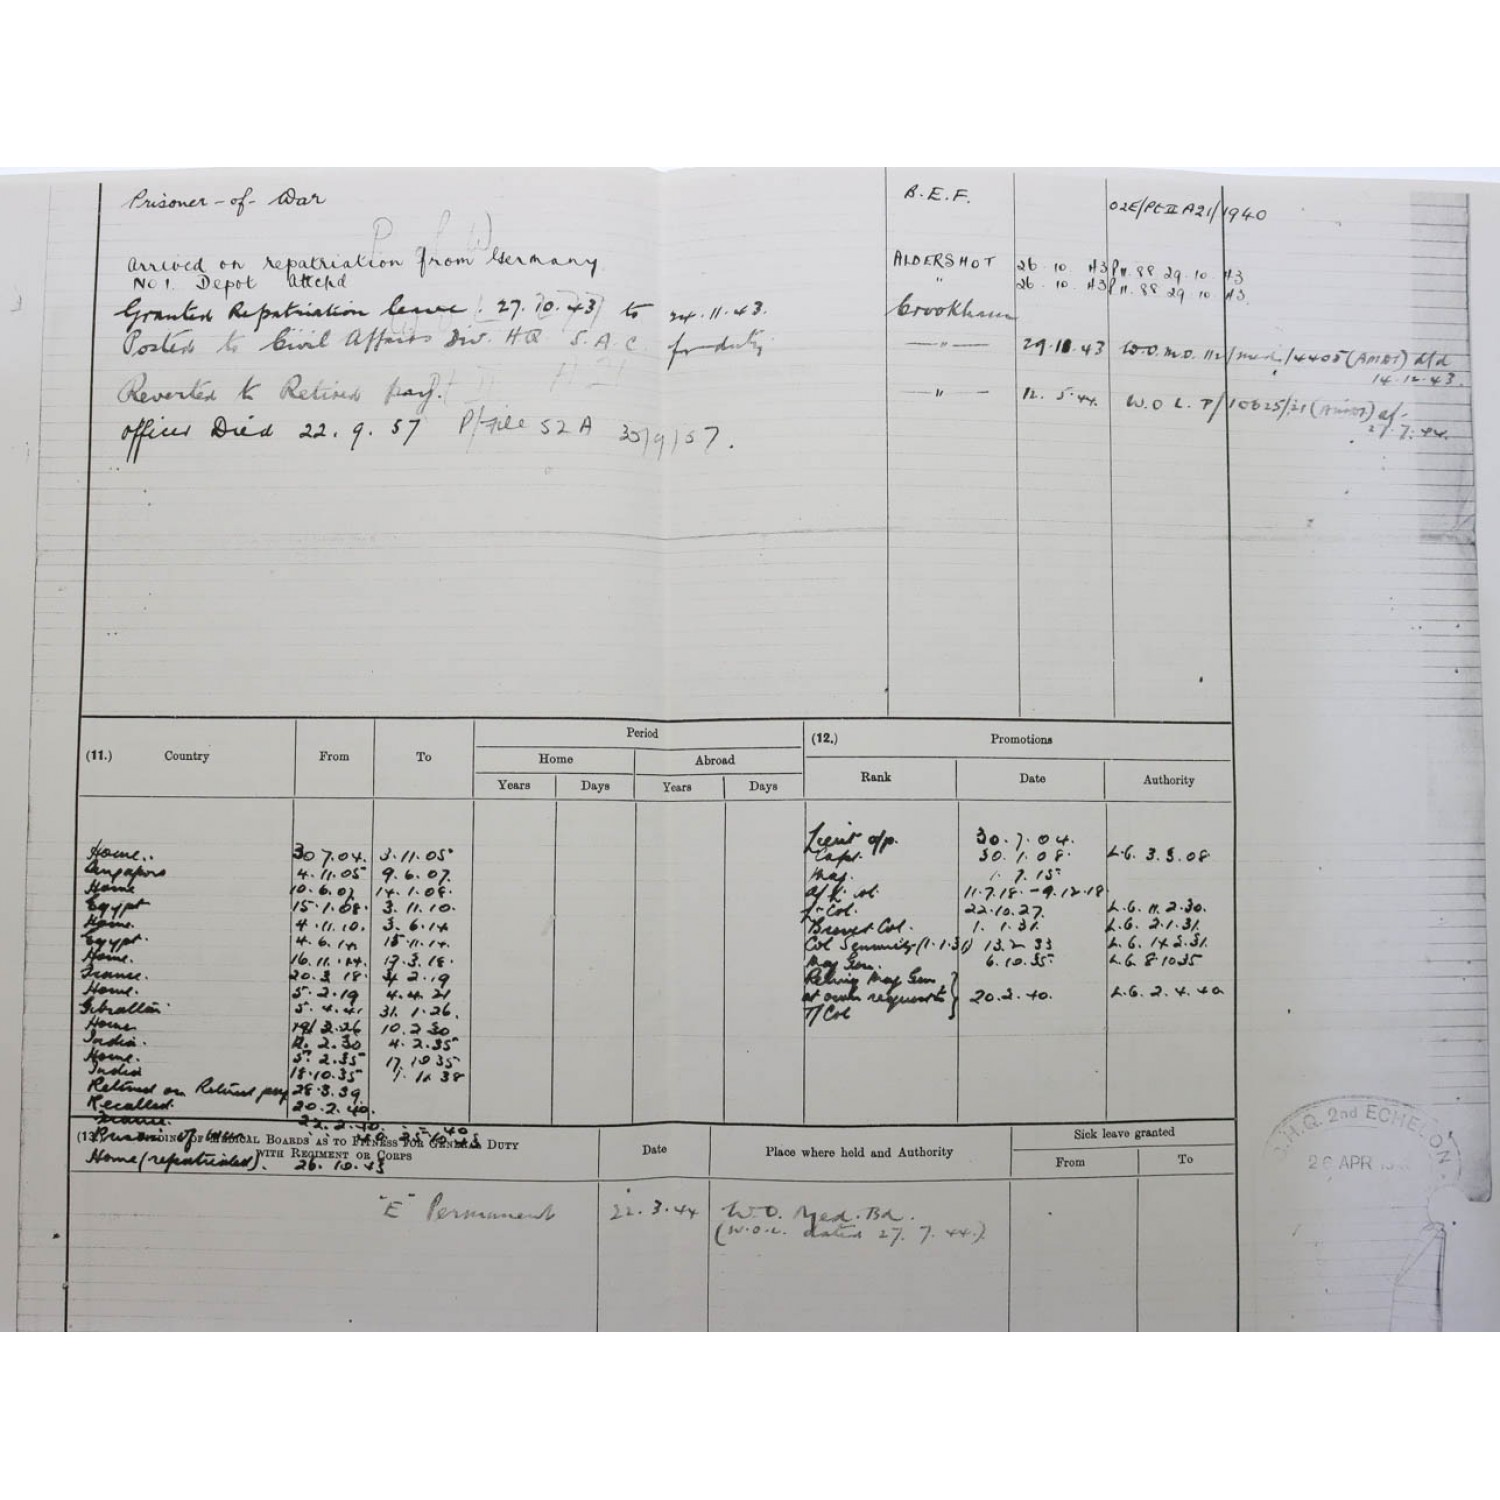 Prisoner-of-War B.E.F. 02E/Pt II A21/1940
P.o.W
Arrived on repatriation from Germany ALDERSHOT 26.10.43 PII.88 29.10.43
No 1. Depot Attchd " 26.10.43 PII.88 29.10.43
Granted Repatriation leave 27.10.43 to 24.11.43. Crookham
Posted to Civil Affairs Div. HQ S.A.C. for duty —"— 29.10.43 W.O.M.O. 112/med/4405(AMD1) dtd
14.12.43.
Reverted to Retired pay. —"— 12.5.44. W.O.L. P/10625/21 of
27.7.44.
officer Died 22.9.57 P/File 52A 30/9/57.
(11.) Country From To Period (12.) Promotions
Home Abroad Rank Date Authority
Years Days Years Days
Lieut o/p. 30.7.04.
Home. 30 7.04. 3.11.05 Capt. 30.1.08. L.G. 3.3.08
Singapore 4.11.05 9.6.07. Maj. 1.7.15
Home 10.6.07 14.1.08. 11.7.18.-9.12.18
Egypt 15.1.08. 3.11.10. Lt-Col. 22.10.27. L.G. 11.2.30.
Home. 4.11.10. 3.6.14 Brevet Col. 1.1.31. L.G. 2.1.31.
Egypt. 4.6.14 15.11.14. Col Seniority (1.1.31) 13.2.33 L.G. 14.2.31.
Home. 16.11.14. 19.3.18. Maj Gen. 6.10.35 L.G. 8.10.35
France. 20.3.18. 4.2.19 Retiring Maj Gen
Home. 5.2.19 4.4.21 at own request 20.2.40. L.G. 2.4.40
Gibraltar 5.4.21. 31.1.26. T/Col
Home 2.26 10.2.30
India. 2.30 4.2.35
Home. 5.2.35 17.10.35
India 18.10.35 38
Retired on Retired pay 28.3.39
Recalled 20.2.40.
France. 22.2.40. 40
Prisoner of War 40 25.10.43
(13.) FINDING OF MEDICAL BOARDS AS TO FITNESS FOR GENERAL DUTY WITH REGIMENT OR CORPS Date Place where held and Authority Sick leave granted
From To
Home (repatriated). 26.10.43
"E" Permanent 22.3.44 W.O. Med. Bd.
(W.O.L. dated 27.7.44.)
G.H.Q. 2nd ECHELON
26 APR